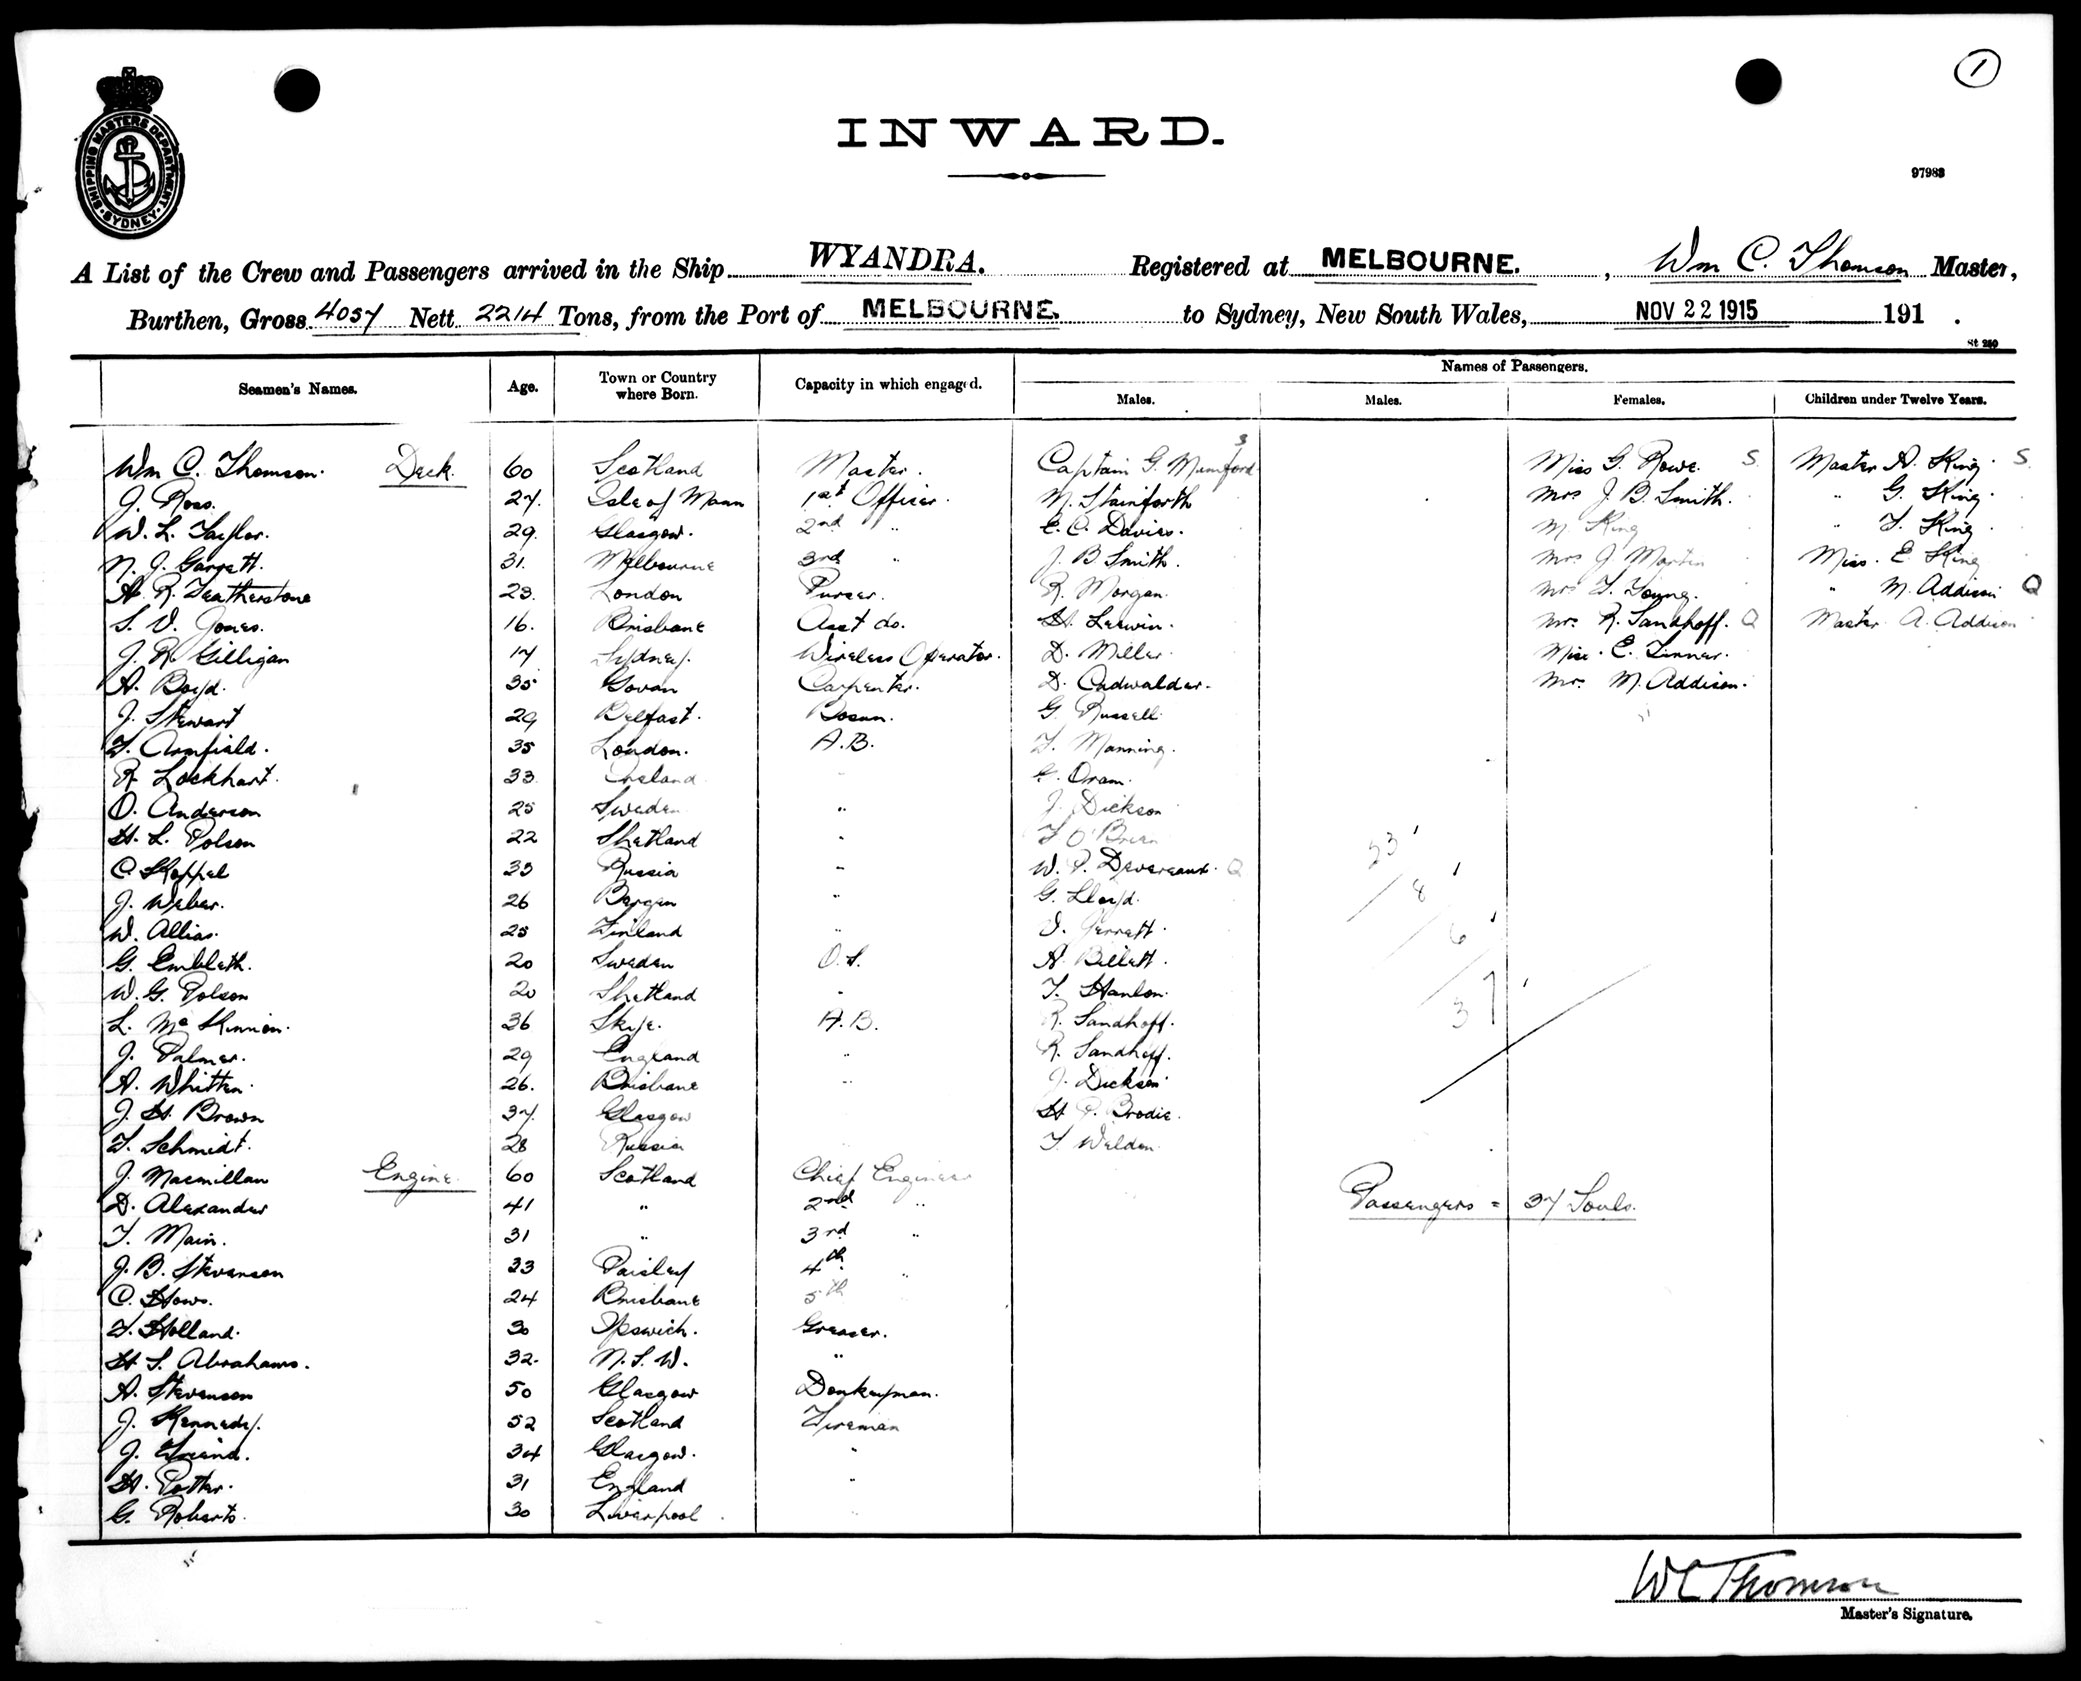 1
SHIPPING MASTERS DEPARTMENT
SYDNEY
INWARD.
97983
A List of the Crew and Passengers arrived in the Ship WYANDRA. Registered at MELBOURNE., Wm C. Thomson Master,
Burthen, Gross 4057 Nett 2214 Tons, from the Port of MELBOURNE. to Sydney, New South Wales, NOV 22 1915 191 .
St 250
Names of Passengers.
Seamen's Names. Age. Town or Country where Born. Capacity in which engaged. Males. Males. Females. Children under Twelve Years.
Wm C. Thomson. Deck. 60 Scotland Master. Captain G. Mumford S Miss G. Rowe. S Master A. King. S
J. Ross. 27. Isle of Mann 1st Officer. N. Stainforth Mrs J. B. Smith. " G. King.
W. L. Taylor. 29. Glasgow. 2nd " E. C. Davies. M. King " T. King
N. J. Garrett. 31. Melbourne 3rd " J. B Smith. Mrs J. Martin Miss. E. King
A. R. Featherstone 23. London Purser. R. Morgan. Mrs T. Young. " M. Addison Q
S. V. Jones. 16. Brisbane Asst do. H. Lerwin. Mrs. R. Sandhoff. Q Master A. Addison
J. R. Gilligan 17 Sydney. Wireless Operator. D. Miller. Miss. E. Finner.
A. Boyd. 35 Govan Carpenter. D. Cadwalder. Mrs. M. Addison.
J. Stewart 29 Belfast. Bosun. G. Russell.
F. Armfield. 35 London. A.B. F. Manning.
R. Lockhart. 33 G. Oram.
O. Anderson 25 Sweden " J. Dickson
H. L. Polson 22 Shetland " F O'Brien
C. Koppel 35 Russia " W. P. Devereaux. Q 23
J. Weber. 26 Bergen " G. Lloyd. 8
W. Allias. 25 Finland " V. Gerrett. 6
G. Embleth. 20 Sweden O.S. A. Billett.
W. G. Polson 20 Shetland " T. Hanlon. 37
L. McKinnon. 36 Skye. A.B. R. Sandhoff.
J. Palmer. 29 England " R. Sandhoff.
A. Whitten. 26. Brisbane " J. Dickson
J. H. Brown 37. Glasgow H P. Brodie.
F. Schmidt. 28 Russia T Weldon.
J. Macmillan Engine. 60 Scotland Chief Engineer
D. Alexander 41 " 2nd " Passengers = 37 Souls.
T. Main. 31 " 3rd "
J. B. Stevenson 33 Paisley 4th "
C. Hows. 24 Brisbane 5th
F. Holland. 30 Ipswich. Greaser.
H. S. Abrahams. 32. N.S.W. "
A. Stevenson 50 Glasgow Donkeyman.
J. Kennedy. 52 Scotland Fireman
J. Friend. 34 Glasgow. "
H. Potter. 31 England "
G. Roberts. 30 Liverpool.
WC Thomson
Master's Signature.